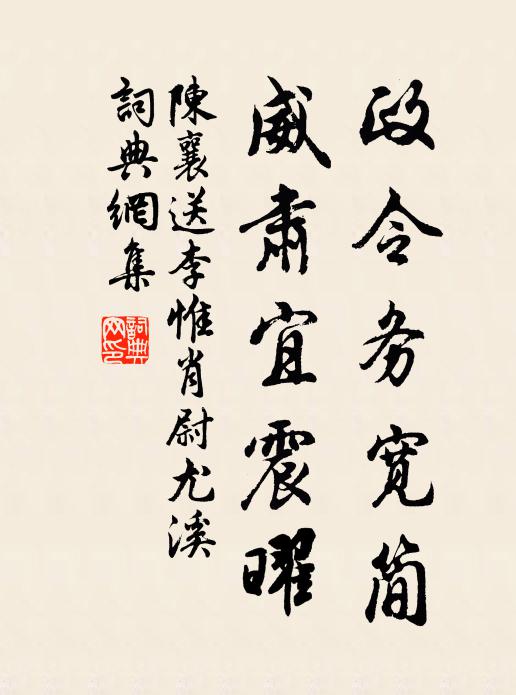 政令务宽简
威肃宜震曜
陳襄送李惟肖尉尤溪
詞典網集
詞典网印